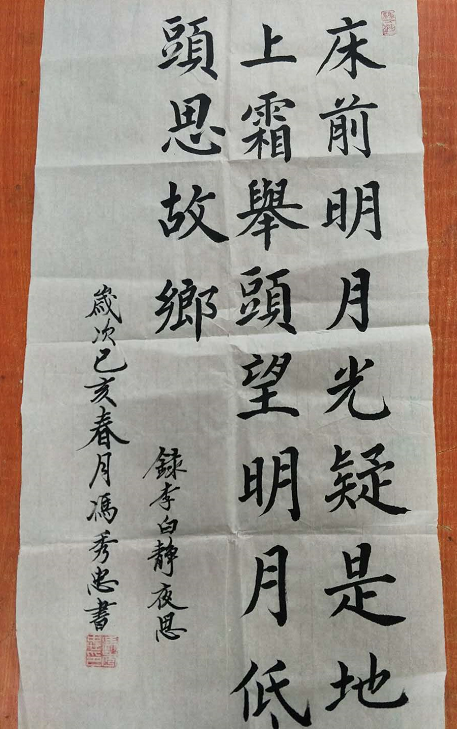 床前明月光疑是地
上霜舉頭望明月低
頭思故鄉
録李白靜夜思
歲次己亥春月馮秀忠書